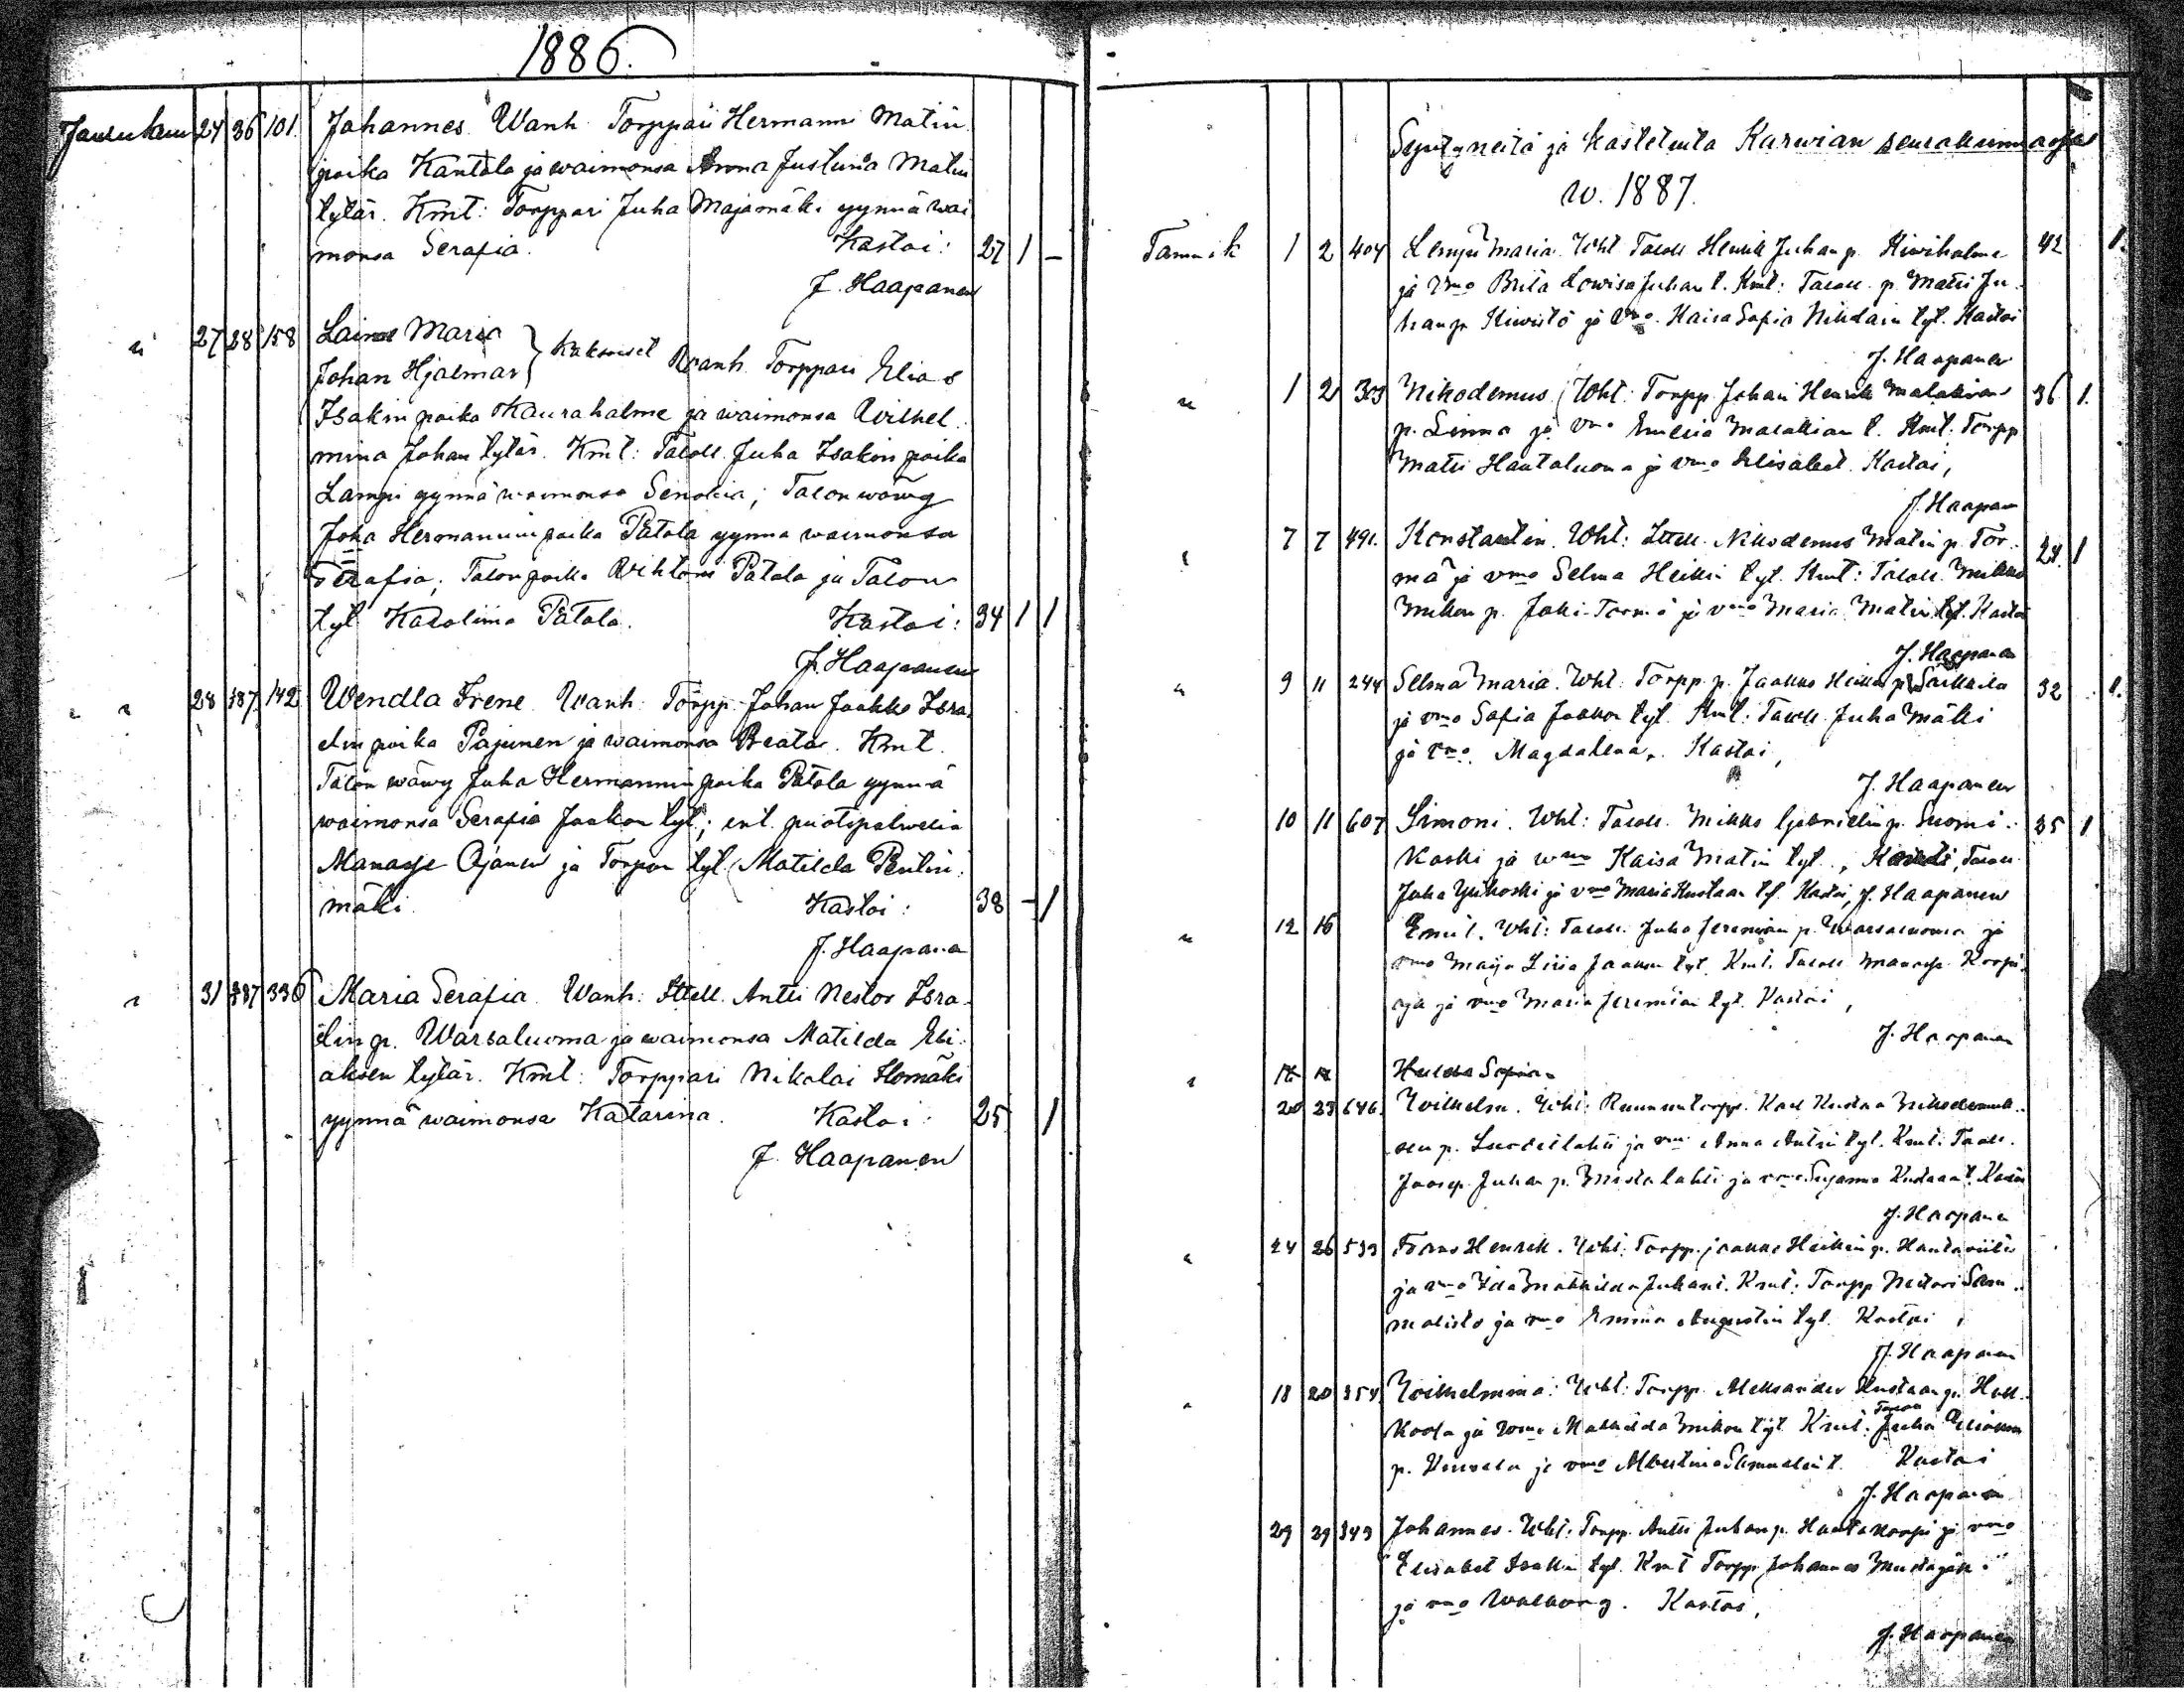 1886.
Jouluk. 24 26 101. Johannes Wanh. Torppari Hermanni Matin
poika Kantola ja waimonsa Anna Justiina Matin
tytär. Kmt: Torppari Juha Majamäki ynnä wai
monsa Serafia. Kastoi: 27 1 –
J. Haapanen
" 27 28 158 Laina Maria
Johan Hjalmar } Kaksoiset Wanh. Torppari Elias
Isakin poika Kaurahalme ja waimonsa Wilhel
mina Johan tytär. Kmt: Taloll. Juha Isakin poika
Lampi ynnä waimonsa Senobia; Talon wäwy
Juha Hermannin poika Pätola ynnä waimonsa
Serafia; Talon poika Wihtori Pätola ja Talon
tyt. Karolina Pätola. Kastoi: 34 1 1
J. Haapanen
" " 28 187 142 Wendla Irene Wanh. Torpp. Johan Jaakko Isra
elin poika Pajunen ja waimonsa Beata. Kmt.
Talon wäwy Juha Hermannin poika Pätola ynnä
waimonsa Serafia Jaakon tyt.; ent. puotipalwelia
Manasse Ojanen ja Torpan tyt. Matilda Pentin
mäki. Kastoi: 38 – 1
J. Haapanen
" 31 387 336 Maria Serafia. Wanh: Ittell. Antti Nestor Isra
elin p. Warsaluoma ja waimonsa Matilda Eli
aksen tytär. Kmt: Torppari Nikolai Homäki
ynnä waimonsa Katarina. Kastoi: 25 1
J. Haapanen
Syntyneitä ja kastetuita Karwian seurakunnassa
w. 1887.
Tammik. 1 2 404 Lempi Maria. Wht. Taloll. Henrik Juhan p. Kiwihalme 42 1.
ja vmo Brita Lowisa Juhan t. Kmt: Taloll. p. Matti Ju
han p. Kiwistö ja vmo. Kaisa Sofia Nikolain tyt. Kastoi
J. Haapanen
" 1 2 303 Nikodemus. Wht: Torpp. Johan Henrik Malakian 36 1.
p. Linna ja vmo Emelia Malakian t. Kmt: Torpp
Matti Hautaluoma ja vmo Elisabet. Kastoi,
J. Haapan
" 7 7 491. Konstantin. Wht: Ittell. Nikodemus Matin p. Tor- 24. 1
mä ja vmo Selma Heikin tyt. Kmt: Taloll. Mikko
Mikon p. Joki-Tormä ja vmo Maria Matin tyt. Kastoi
J. Haapanen
" 9 11 244 Selma Maria. Wht: Torpp. p. Jaakko Heikin p. Särkkilä 32 1.
ja vmo Sofia Jaakon tyt. Kmt: Taloll. Juha Mäki
ja vmo. Magdalena. Kastoi,
J. Haapanen
10 11 607 Simoni. Wht: Taloll. Mikko Gabrielin p. Suomi- 35 1
koski ja wmo Kaisa Matin tyt., Taloll
Juha Ylikoski ja vmo Maria Kustaan tyt. Kastoi, J. Haapanen
" 12 16 Emil. Wht: Taloll. Juha Jeremian p. Warsaluoma ja
vmo Maija Liisa Jaakon tyt. Kmt. Taloll. Manasse Korpi-
oja ja vmo Maria Jeremian tyt. Kastoi,
J. Haapanen
Hulda Sofia
" 20 23 646. Wilhelm. Wht: Ruununtorpp. Karl Kustaa Nikodemuk-
sen p. Luodeslahti ja vmo Anna Antin tyt. Kmt: Taloll.
Joosep Juhan p. Mustalahti ja vmo Susanna Kustaan t. Kastoi
J. Haapanen
" 24 26 533 Frans Henrik. Wht: Torpp. Jaakko Heikin p. Hautaviita
ja vmo Ida Mathilda Juhan t. Kmt: Torpp Nestori Sam-
malisto ja vmo Emma Augustin tyt. Kastoi,
J. Haapanen
" 18 20 354. Wilhelmina: Wht: Torpp. Aleksander Kustaan p. Hall-
koda ja vmo Mathilda Mikon tyt. Kmt: Talon Juha Eliaksen
p. ja vmo Albertina Samuelin t. Kastoi
J. Haapanen
29 29 343 Johannes. Wht: Torpp. Antti Juhan p. Hautakorpi ja vmo
Elisabet Isakin tyt. Kmt Torpp. Johannes Mustajärvi
ja vmo Walborg. Kastoi,
J. Haapanen